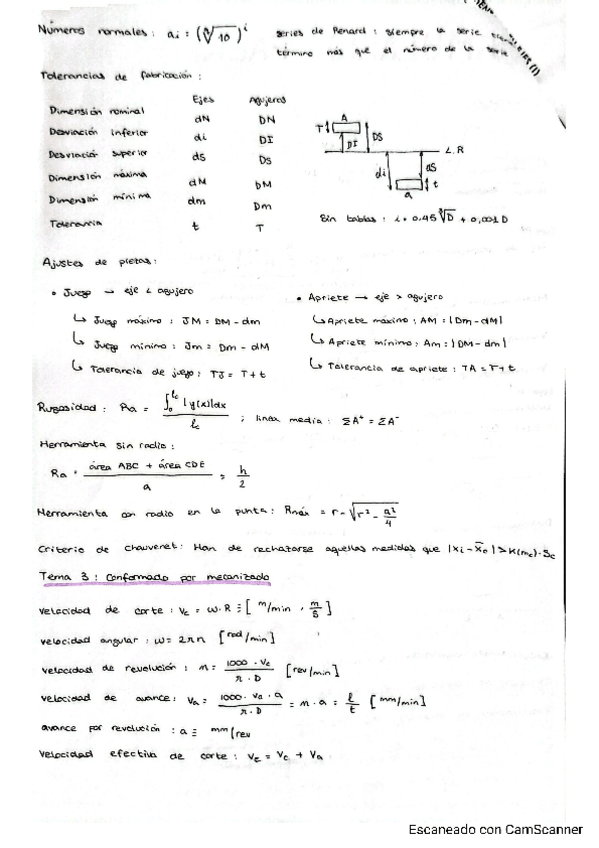 Números normales : ai = (ᴺ√10)ⁱ series de Renard : siempre la serie tiene un
término más que el número de la serie
Tolerancias de fabricación :
Ejes Agujeros
Dimensión nominal dN DN
Desviación inferior di DI
Desviación superior ds Ds
Dimensión máxima dM DM
Dimensión mínima dm Dm
Tolerancia t T
T A DI DS
L.R
di ds t a
Sin tablas : i = 0,45 ∛D + 0,001 D
Ajustes de piezas :
• Juego → eje < agujero
↳ Juego máximo : JM = DM - dm
↳ Juego mínimo : Jm = Dm - dM
↳ Tolerancia de juego : TJ = T + t
• Apriete → eje > agujero
↳ Apriete máximo : AM = |Dm - dM|
↳ Apriete mínimo : Am = |DM - dm|
↳ Tolerancia de apriete : TA = T + t
Rugosidad : Ra = ∫₀^lc |y(x)|dx / lc ; línea media : ΣA⁺ = ΣA⁻
Herramienta sin radio :
Ra = área ABC + área CDE / a = h/2
Herramienta con radio en la punta : Rmáx = r - √(r² - a²/4)
Criterio de Chauvenet : Han de rechazarse aquellas medidas que |xi - x̄c| > K(nc) · Sc
Tema 3 : Conformado por mecanizado
Velocidad de corte : Vc = ω · R ≡ [m/min , m/s]
Velocidad angular : ω = 2πn [rad/min]
Velocidad de revolución : n = 1000 · Vc / π · D [rev/min]
Velocidad de avance : Va = 1000 · Vc · a / π · D = n · a = l/t [mm/min]
avance por revolución : a ≡ mm/rev
Velocidad efectiva de corte : Ve = Vc + Va
Escaneado con CamScanner